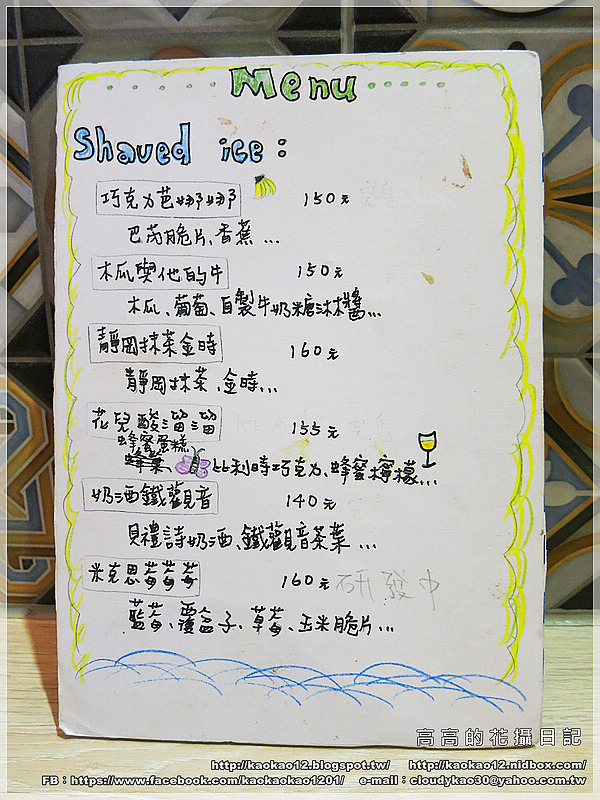 Menu
Shaved ice:
巧克力芭娜娜 150元
巴芮脆片、香蕉...
木瓜與他的牛 150元
木瓜、葡萄、自製牛奶糖沐醬...
靜岡抹茶金時 160元
靜岡抹茶、金時...
花兒酸溜溜 155元
蜂蜜蛋糕
比利時巧克力、蜂蜜檸檬...
奶酒鐵觀音 140元
貝禮詩奶酒、鐵觀音茶葉...
米克思莓莓莓 160元 研發中
藍莓、覆盆子、草莓、玉米脆片...
高高的花攝日記
http://kaokao12.blogspot.tw/ http://kaokao12.nidbox.com/
FB：https://www.facebook.com/kaokaokao1201/ e-mail：cloudykao30@yahoo.com.tw